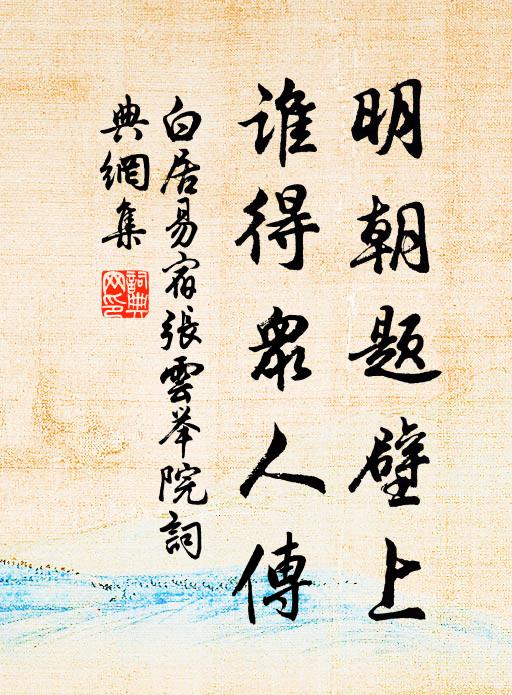 明朝題壁上
谁得眾人傳
白居易宿張雲举院詞
典網集
詞典
网印